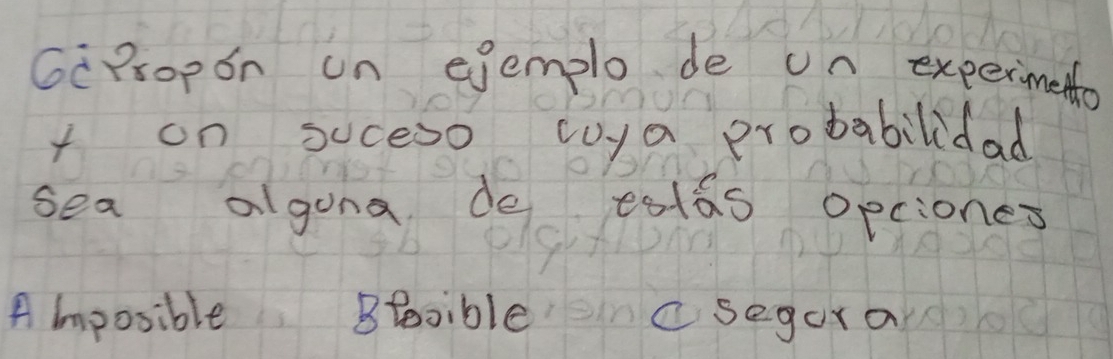 6¿Propón un ejemplo de un experimento
y un suceso cuya probabilidad
sea alguna de estás opciones
A Imposible B Posible C segura